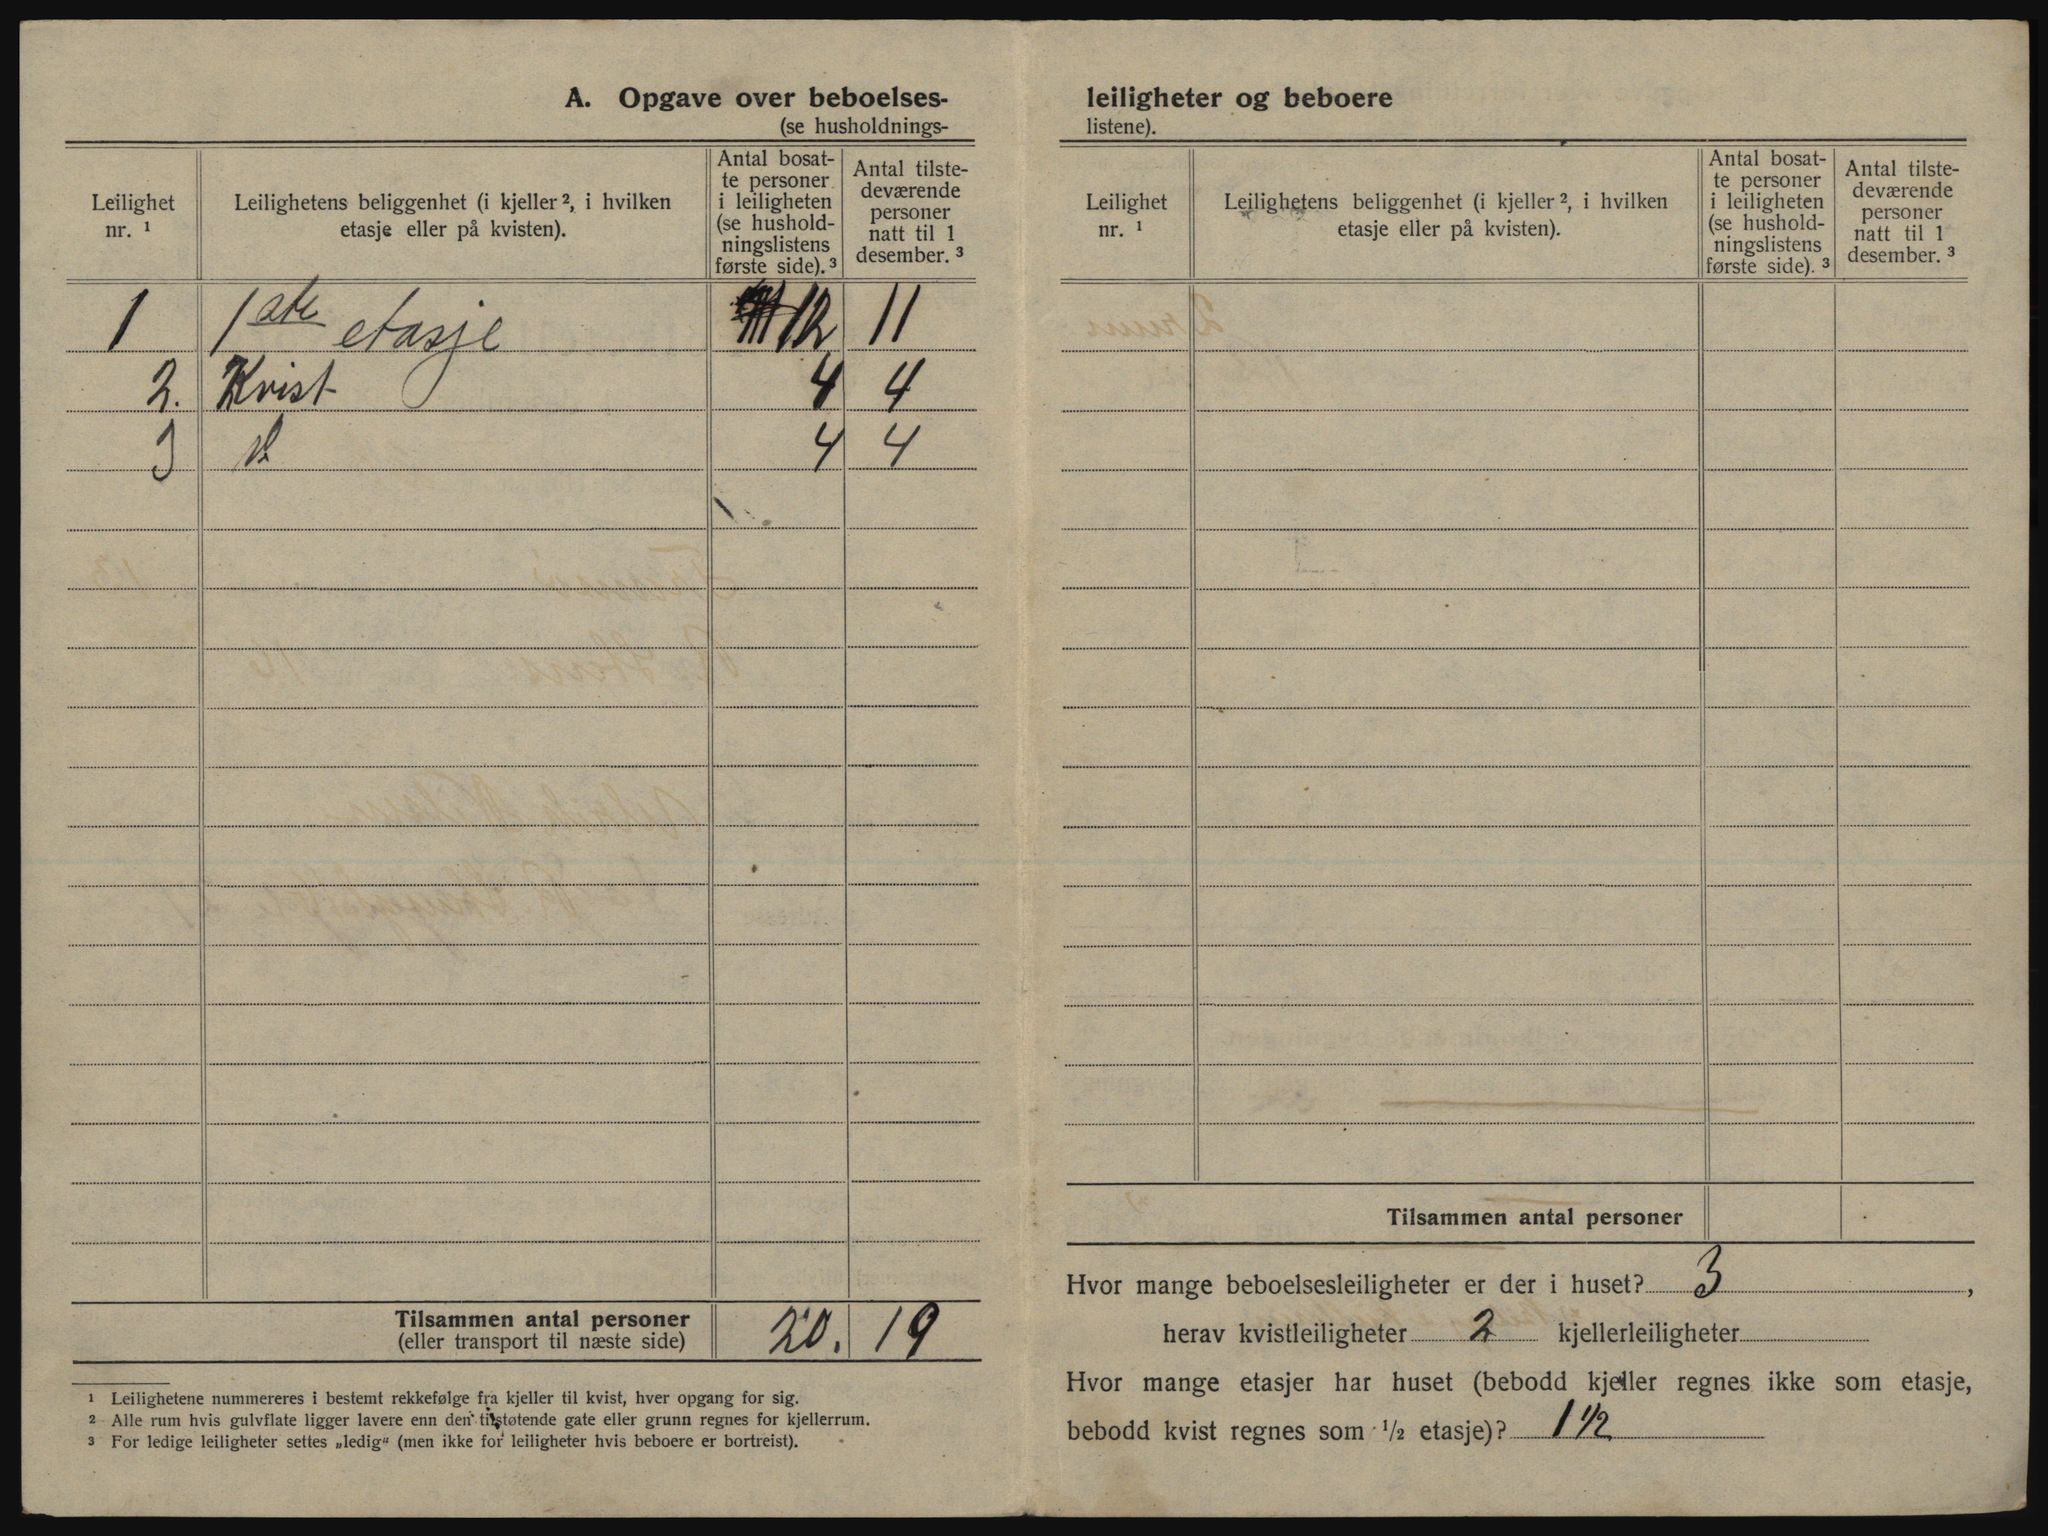 A. Opgave over beboelses-
(se husholdnings-
Leilighet nr. ¹
Leilighetens beliggenhet (i kjeller ², i hvilken etasje eller på kvisten).
Antal bosat-
te personer
i leiligheten
(se hushold-
ningslistens
første side). ³
Antal tilste-
deværende
personer
natt til 1
desember. ³
1 1ste etasje 12 11
2. Kvist 4 4
3 d. 4 4
Tilsammen antal personer 20. 19
(eller transport til næste side)
¹ Leilighetene nummereres i bestemt rekkefølge fra kjeller til kvist, hver opgang for sig.
² Alle rum hvis gulvflate ligger lavere enn den tilstøtende gate eller grunn regnes for kjellerrum.
³ For ledige leiligheter settes „ledig“ (men ikke for leiligheter hvis beboere er bortreist).
leiligheter og beboere
listene).
Leilighet nr. ¹
Leilighetens beliggenhet (i kjeller ², i hvilken etasje eller på kvisten).
Antal bosat-
te personer
i leiligheten
(se hushold-
ningslistens
første side). ³
Antal tilste-
deværende
personer
natt til 1
desember. ³
Tilsammen antal personer
Hvor mange beboelsesleiligheter er der i huset? 3 ,
herav kvistleiligheter 2 kjellerleiligheter
Hvor mange etasjer har huset (bebodd kjeller regnes ikke som etasje,
bebodd kvist regnes som ½ etasje)? 1 ½